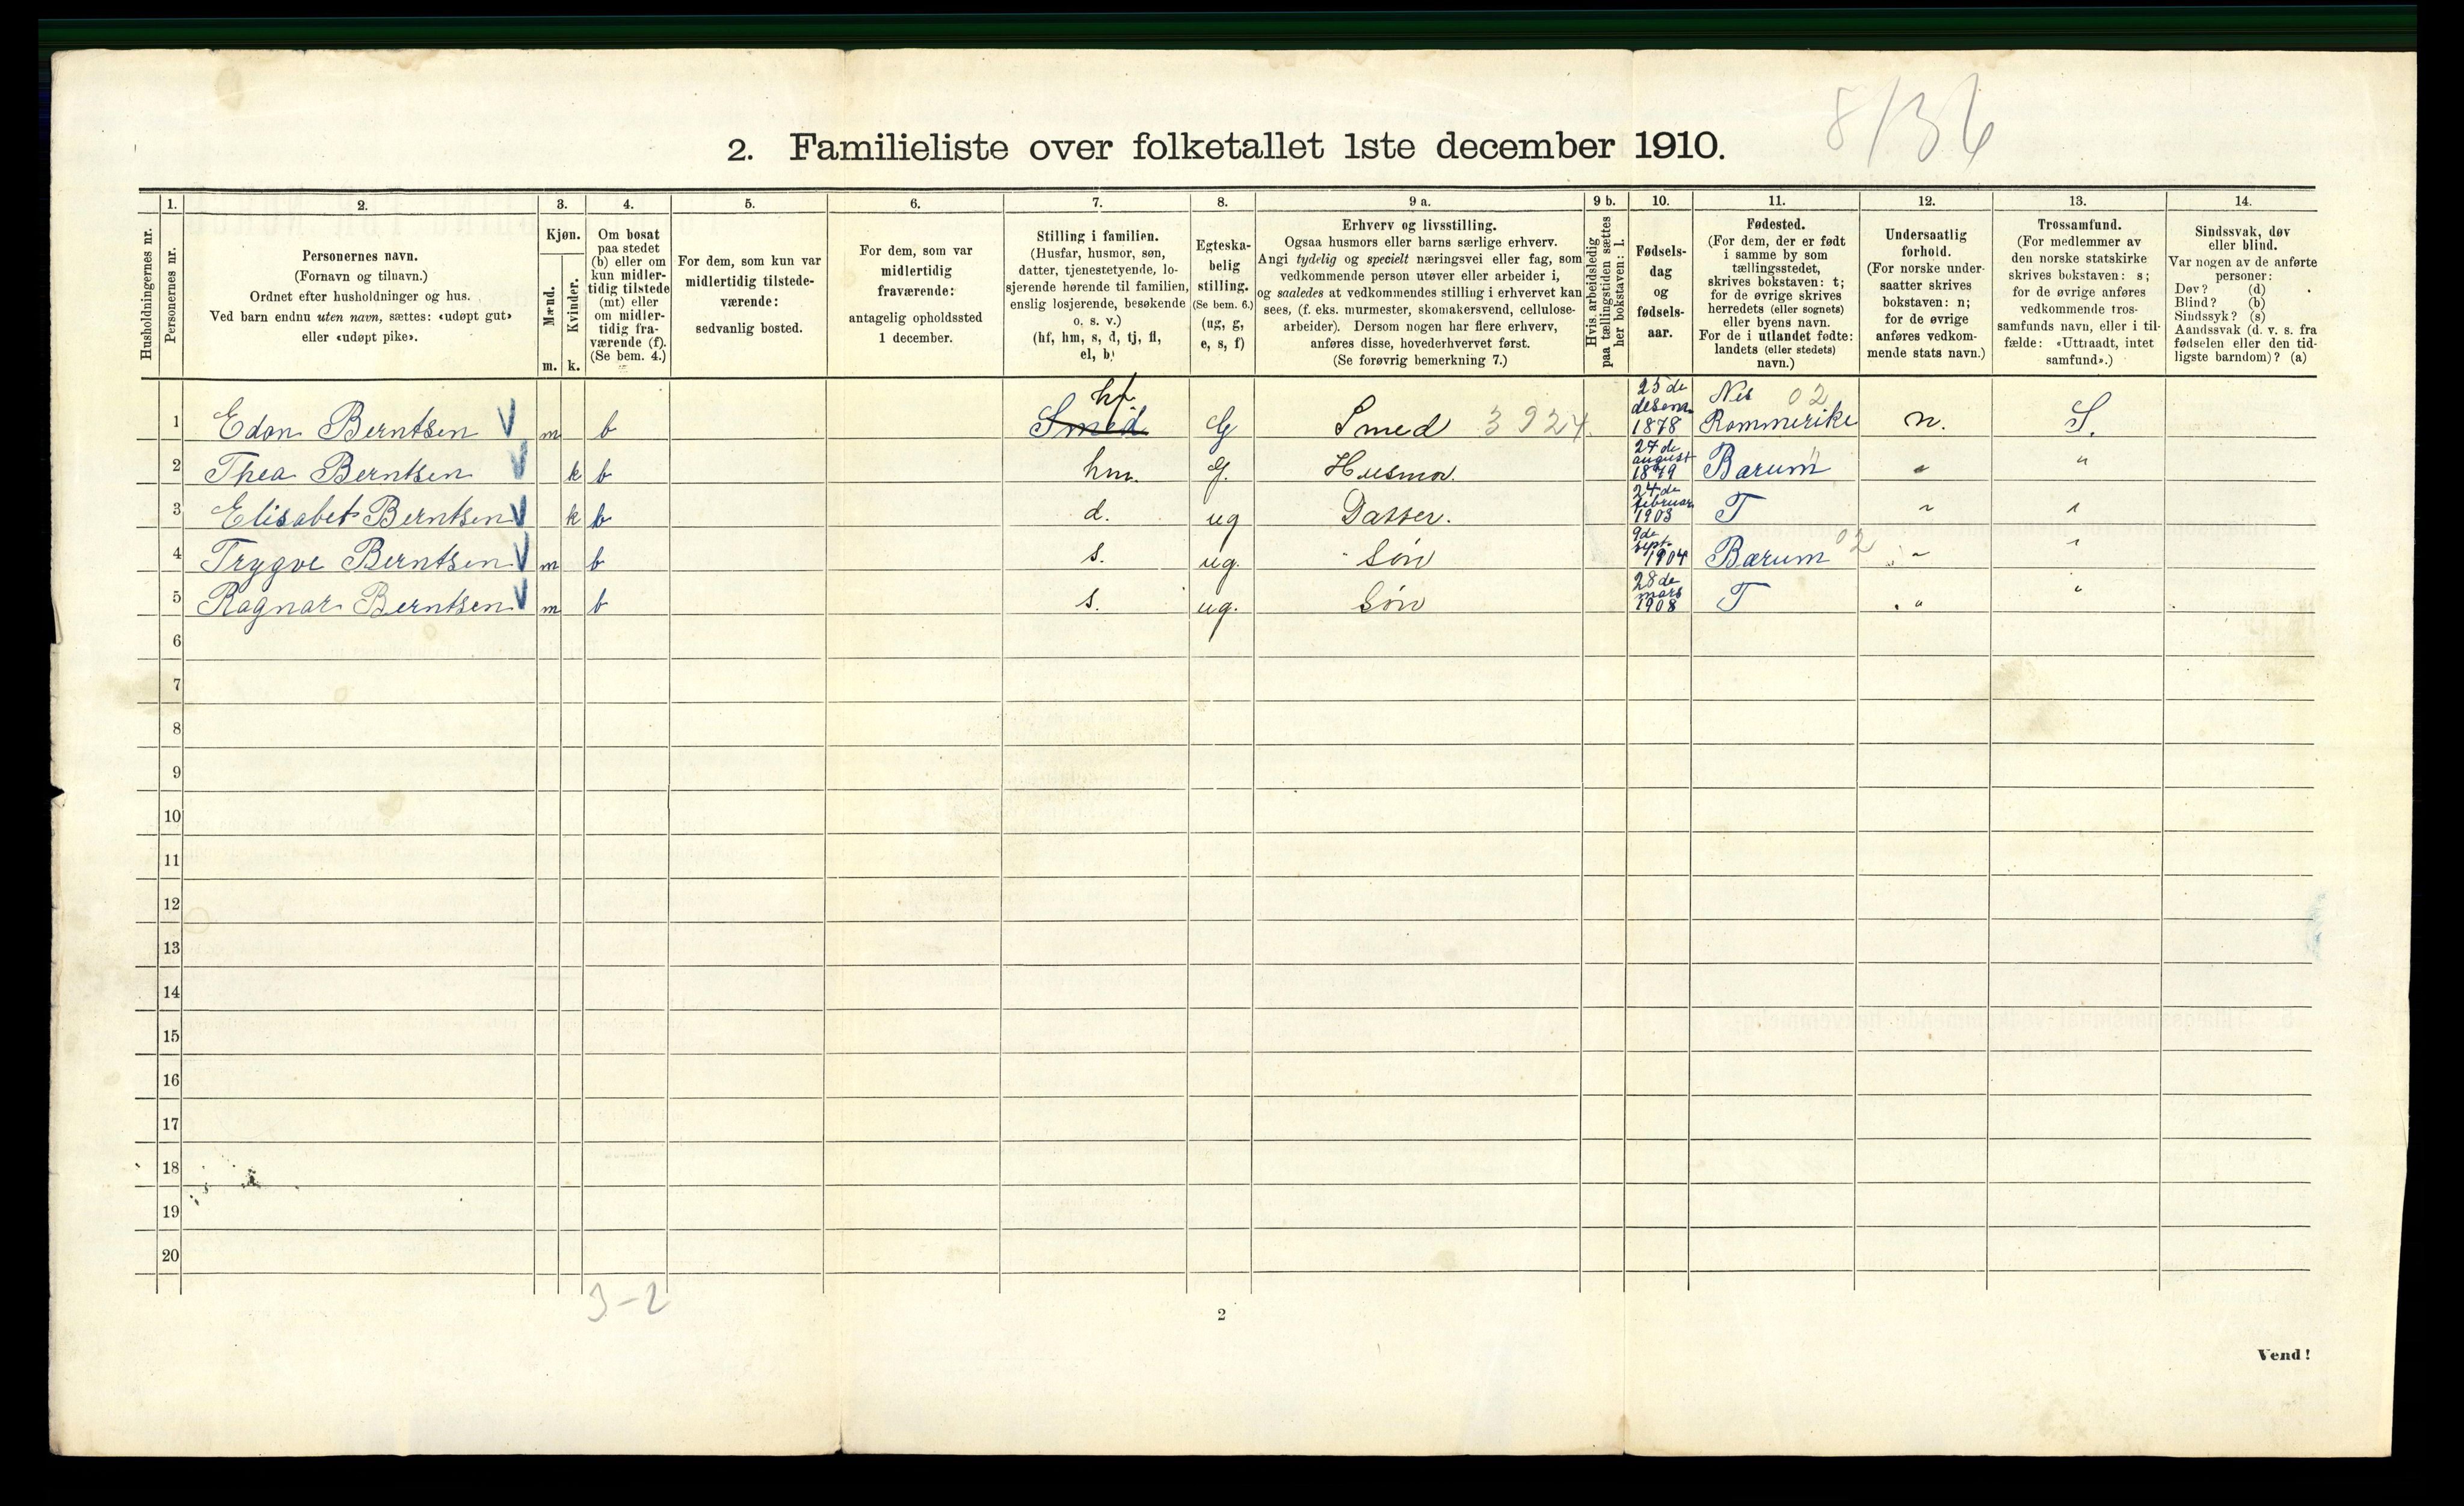 8/36
2. Familieliste over folketallet 1ste december 1910.
1. 2. 3. 4. 5. 6. 7. 8. 9 a. 9 b. 10. 11. 12. 13. 14.
Husholdningernes nr.
Personernes nr.
Personernes navn.
(Fornavn og tilnavn.)
Ordnet efter husholdninger og hus.
Ved barn endnu uten navn, sættes: «udøpt gut»
eller «udøpt pike».
Kjøn.
Mænd.
Kvinder.
m. k.
Om bosat
paa stedet
(b) eller om
kun midler-
tidig tilstede
(mt) eller
om midler-
tidig fra-
værende (f).
(Se bem. 4.)
For dem, som kun var
midlertidig tilstede-
værende:
sedvanlig bosted.
For dem, som var
midlertidig
fraværende:
antagelig opholdssted
1 december.
Stilling i familien.
(Husfar, husmor, søn,
datter, tjenestetyende, lo-
sjerende hørende til familien,
enslig losjerende, besøkende
o. s. v.)
(hf, hm, s, d, tj, fl,
el, b)
Egteska-
belig
stilling.
(Se bem. 6.)
(ug, g,
e, s, f)
Erhverv og livsstilling.
Ogsaa husmors eller barns særlige erhverv.
Angi tydelig og specielt næringsvei eller fag, som
vedkommende person utøver eller arbeider i,
og saaledes at vedkommendes stilling i erhvervet kan
sees, (f. eks. murmester, skomakersvend, cellulose-
arbeider). Dersom nogen har flere erhverv,
anføres disse, hovederhvervet først.
(Se forøvrig bemerkning 7.)
Hvis arbeidsledig
paa tællingstiden sættes
her bokstaven: l.
Fødsels-
dag
og
fødsels-
aar.
Fødested.
(For dem, der er født
i samme by som
tællingsstedet,
skrives bokstaven: t;
for de øvrige skrives
herredets (eller sognets)
eller byens navn.
For de i utlandet fødte:
landets (eller stedets)
navn.)
Undersaatlig
forhold.
(For norske under-
saatter skrives
bokstaven: n;
for de øvrige
anføres vedkom-
mende stats navn.)
Trossamfund.
(For medlemmer av
den norske statskirke
skrives bokstaven: s;
for de øvrige anføres
vedkommende tros-
samfunds navn, eller i til-
fælde: «Uttraadt, intet
samfund».)
Sindssvak, døv
eller blind.
Var nogen av de anførte
personer:
Døv? (d)
Blind? (b)
Sindssyk? (s)
Aandssvak (d. v. s. fra
fødselen eller den tid-
ligste barndom)? (a)
1 Edon Berntsen V m b Smed hf G Smed 3924 25de desem. 1878 Nes 02 Rommerike n. S.
2 Thea Berntsen V k b hm. G. Husmor. 27de august 1879 Barum " " "
3 Elisabet Berntsen V k b d. ug Datter. 24de februar 1903 T " "
4 Trygve Berntsen V m b s. ug. Søn 9de sept. 1904 Bærum 02 " "
5 Ragnar Berntsen V m b s. ug. Søn 28de mars 1908 T " "
6
7
8
9
10
11
12
13
14
15
16
17
18
19
20
3-2
2
Vend!